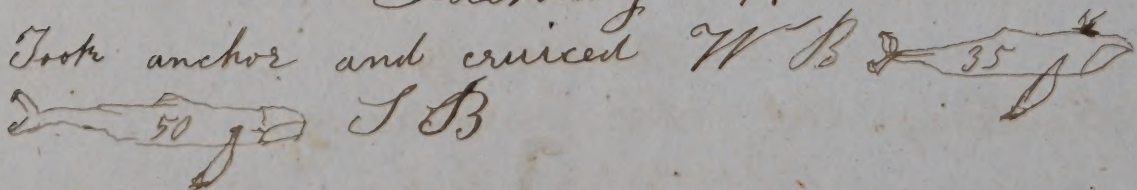 Took anchor and cruiced W B 35
50 S B